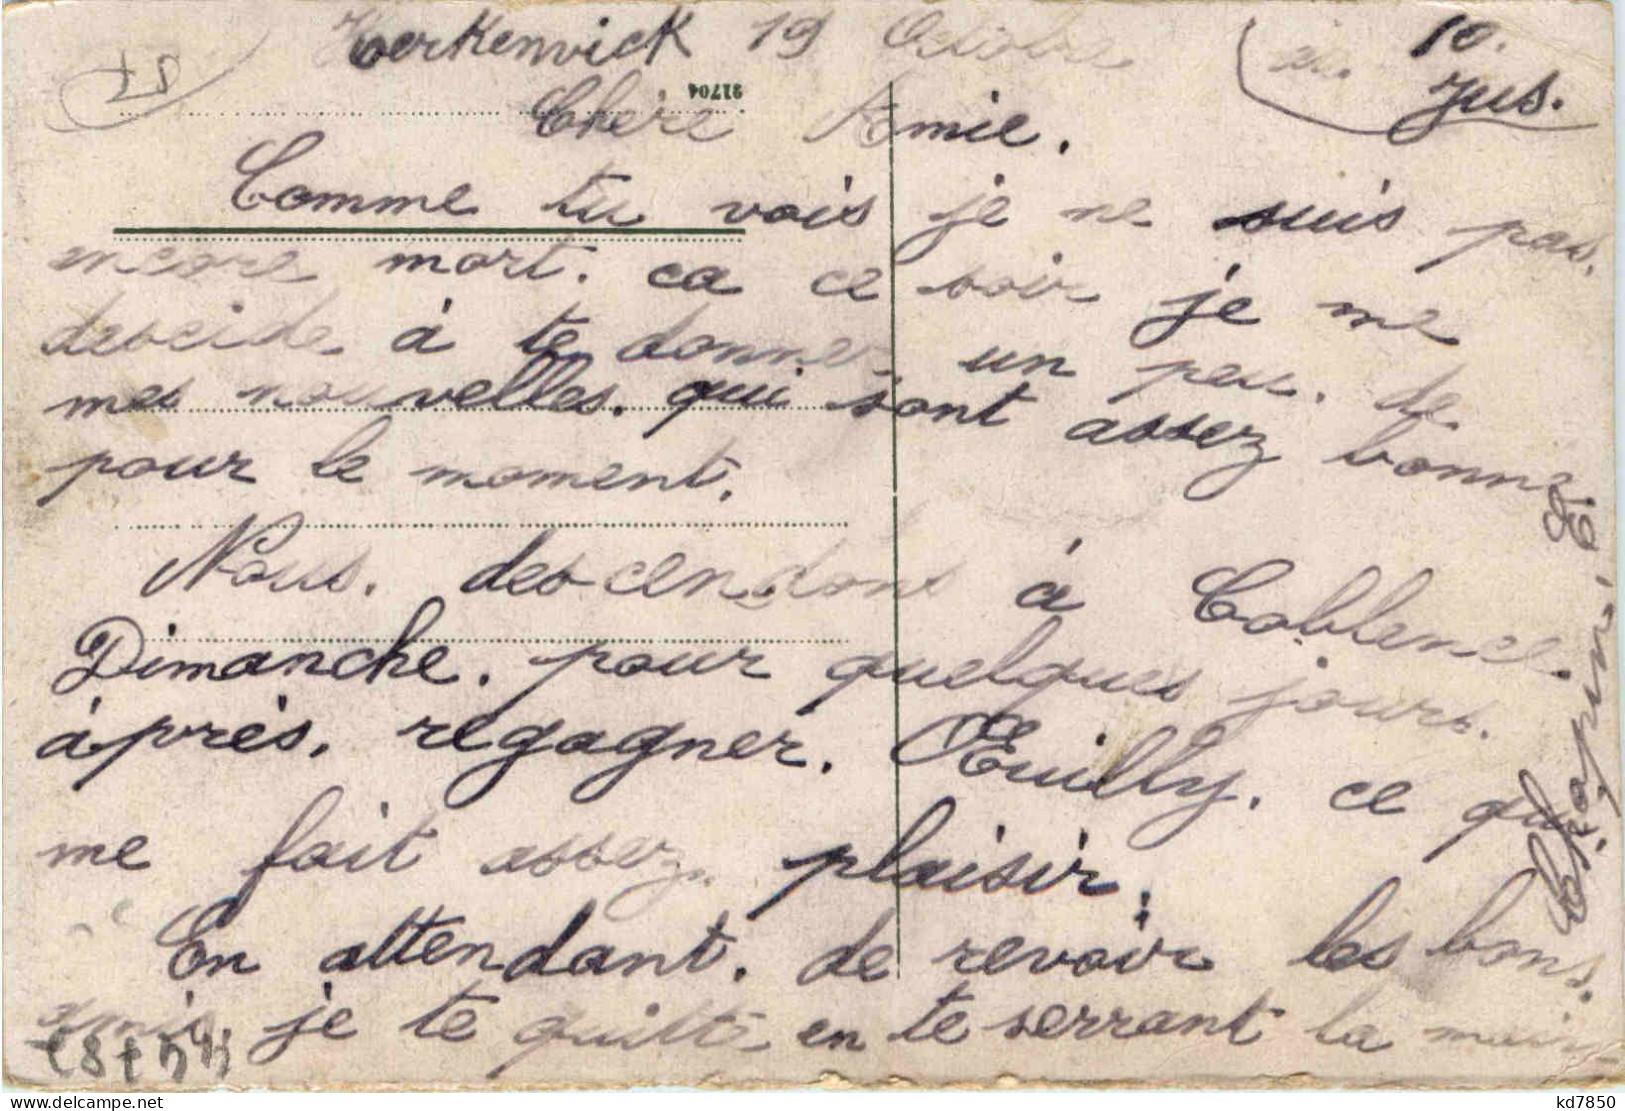 Hoerkenvick 19 Octobre
10.
Jus.
91704
Chère Amie.
Comme tu vois je ne suis pas.
encore mort. ca ce soir je me
descide à te donner un peu. de
mes nouvelles. qui sont assez bonne
pour le moment.
Nous. descendons à Coblence.
Dimanche. pour quelques jours.
àprès. regagner. Œuilly. ce qui
me fait assez plaisir.
En attendant. de revoir les bons.
amis. je te quitte en te serrant la main